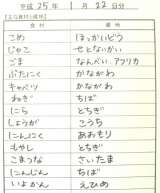 平成 25年 1月 22日分
食材 産地
こめ ほっかいどう
じゃこ せとないかい
ごま なんべい、アフリカ
ぶたにく かながわ
キャベツ かながわ
ねぎ ちば
にら とちぎ
しょうが こうち
にんにく あおもり
もやし とちぎ
こまつな さいたま
にんじん ちば
いよかん えひめ